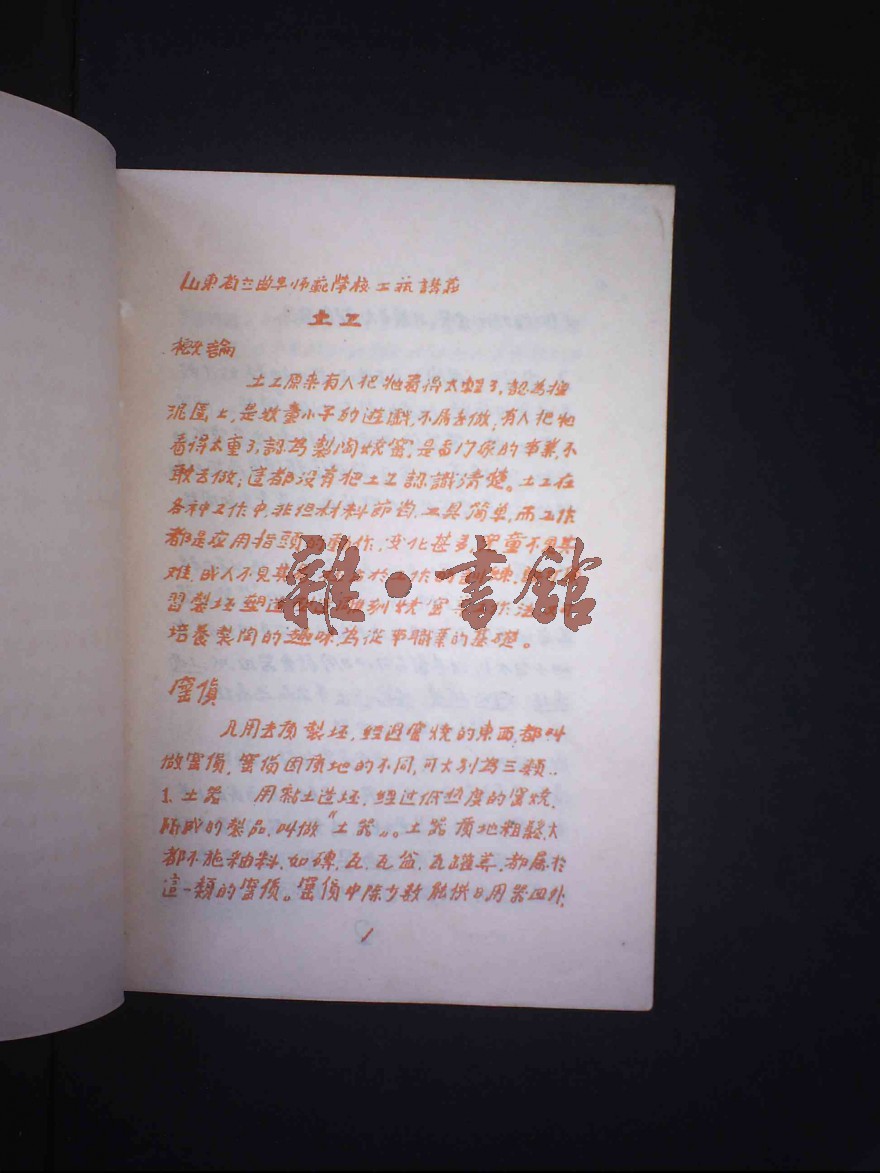 山東省立曲阜师範學校工藝講義
土工
概論
土工原來有人把牠看得太輕了,認為捏
泥區上,是孩童小子的遊戲,不屑去做,有人把牠
看得太重了,認為製陶燒窰,是專门家的事業,不
敢去做;這都没有把土工認識清楚。土工在
各种工作中,非但材料節省,工具簡单,而工作
都是应用指頭的動作,变化甚多,兒童不見其
難,成人不見其
習製坯塑造 雕刻燒窰
培養製陶的趣味,為從事職業的基礎。
窰貨
凡用 製坯,經過窰燒的東西,都叫
做窰貨,窰貨因质地的不同,可大别為三類:
1、土器 用黏土造坯,經过低热度的窰燒,
所成的製品,叫做"土器"。土器质地粗鬆,大
都不施釉料,如磚,瓦,瓦盆,瓦罐等,都属於
這一類的窰貨。窰貨中除少数能供日用器皿外,
1
雜·書館